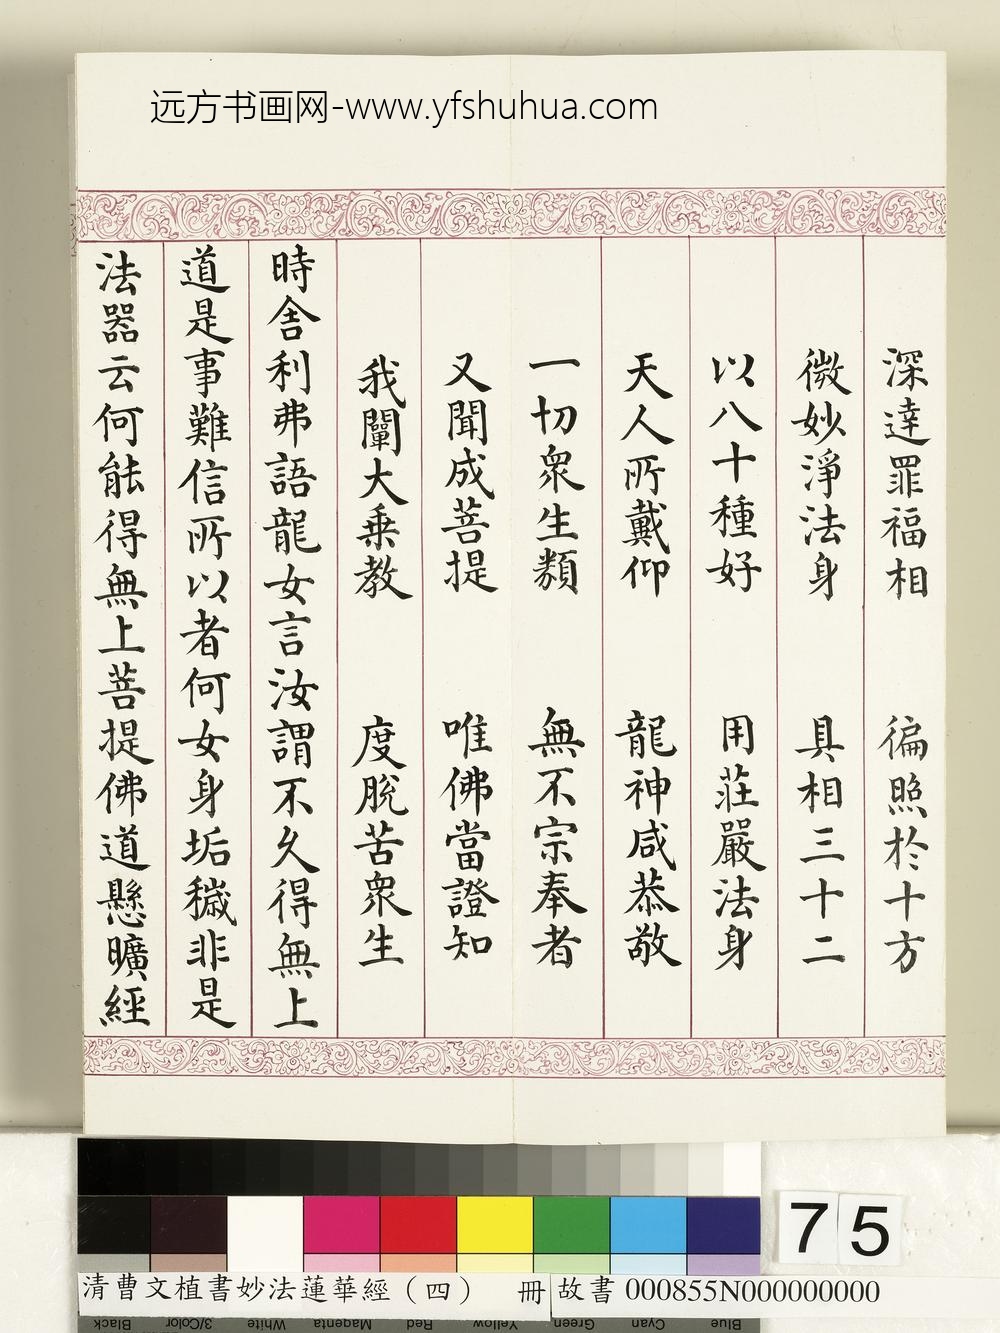 远方书画网-www.yfshuhua.com
深達罪福相　徧照於十方
微妙淨法身　具相三十二
以八十種好　用莊嚴法身
天人所戴仰　龍神咸恭敬
一切衆生類　無不宗奉者
又聞成菩提　唯佛當證知
我闡大乗教　度脫苦衆生
時舍利弗語龍女言汝謂不久得無上
道是事難信所以者何女身垢穢非是
法器云何能得無上菩提佛道懸曠經
75
清曹文植書妙法蓮華經（四）　冊 故書 000855N000000000
Black 3/Color White Magenta Red Yellow Green Cyan Blue